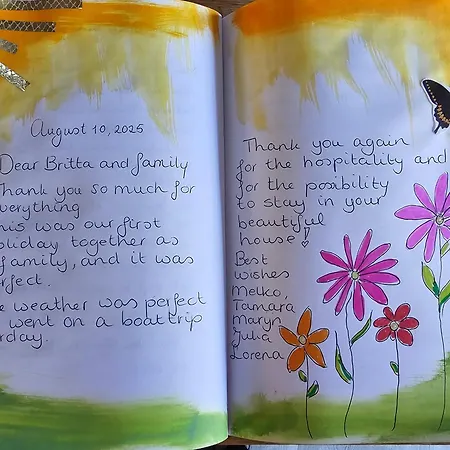 August 10, 2025
Dear Britta and family
Thank you so much for
everything
his was our first
oliday together as
family, and it was
rfect.
e weather was perfect
went on a boattrip
rday.
Thank you again
for the hospitality and
for the posibility
to stay in your
beautiful
house!
Best
wishes
Melko,
Tamara
Maryn
Julia
Lorena